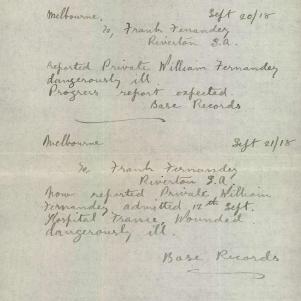 Melbourne. Sept 20/18
To, Frank Fernandez
Riverton S.A.
reported Private William Fernandez
dangerously ill
Progress report expected
Base Records
Melbourne Sept 21/18
To Frank Fernandez
Riverton S.A.
Now reported Private William
Fernandez admitted 12th Sept.
Hospital France, Wounded
dangerously ill.
Base Records